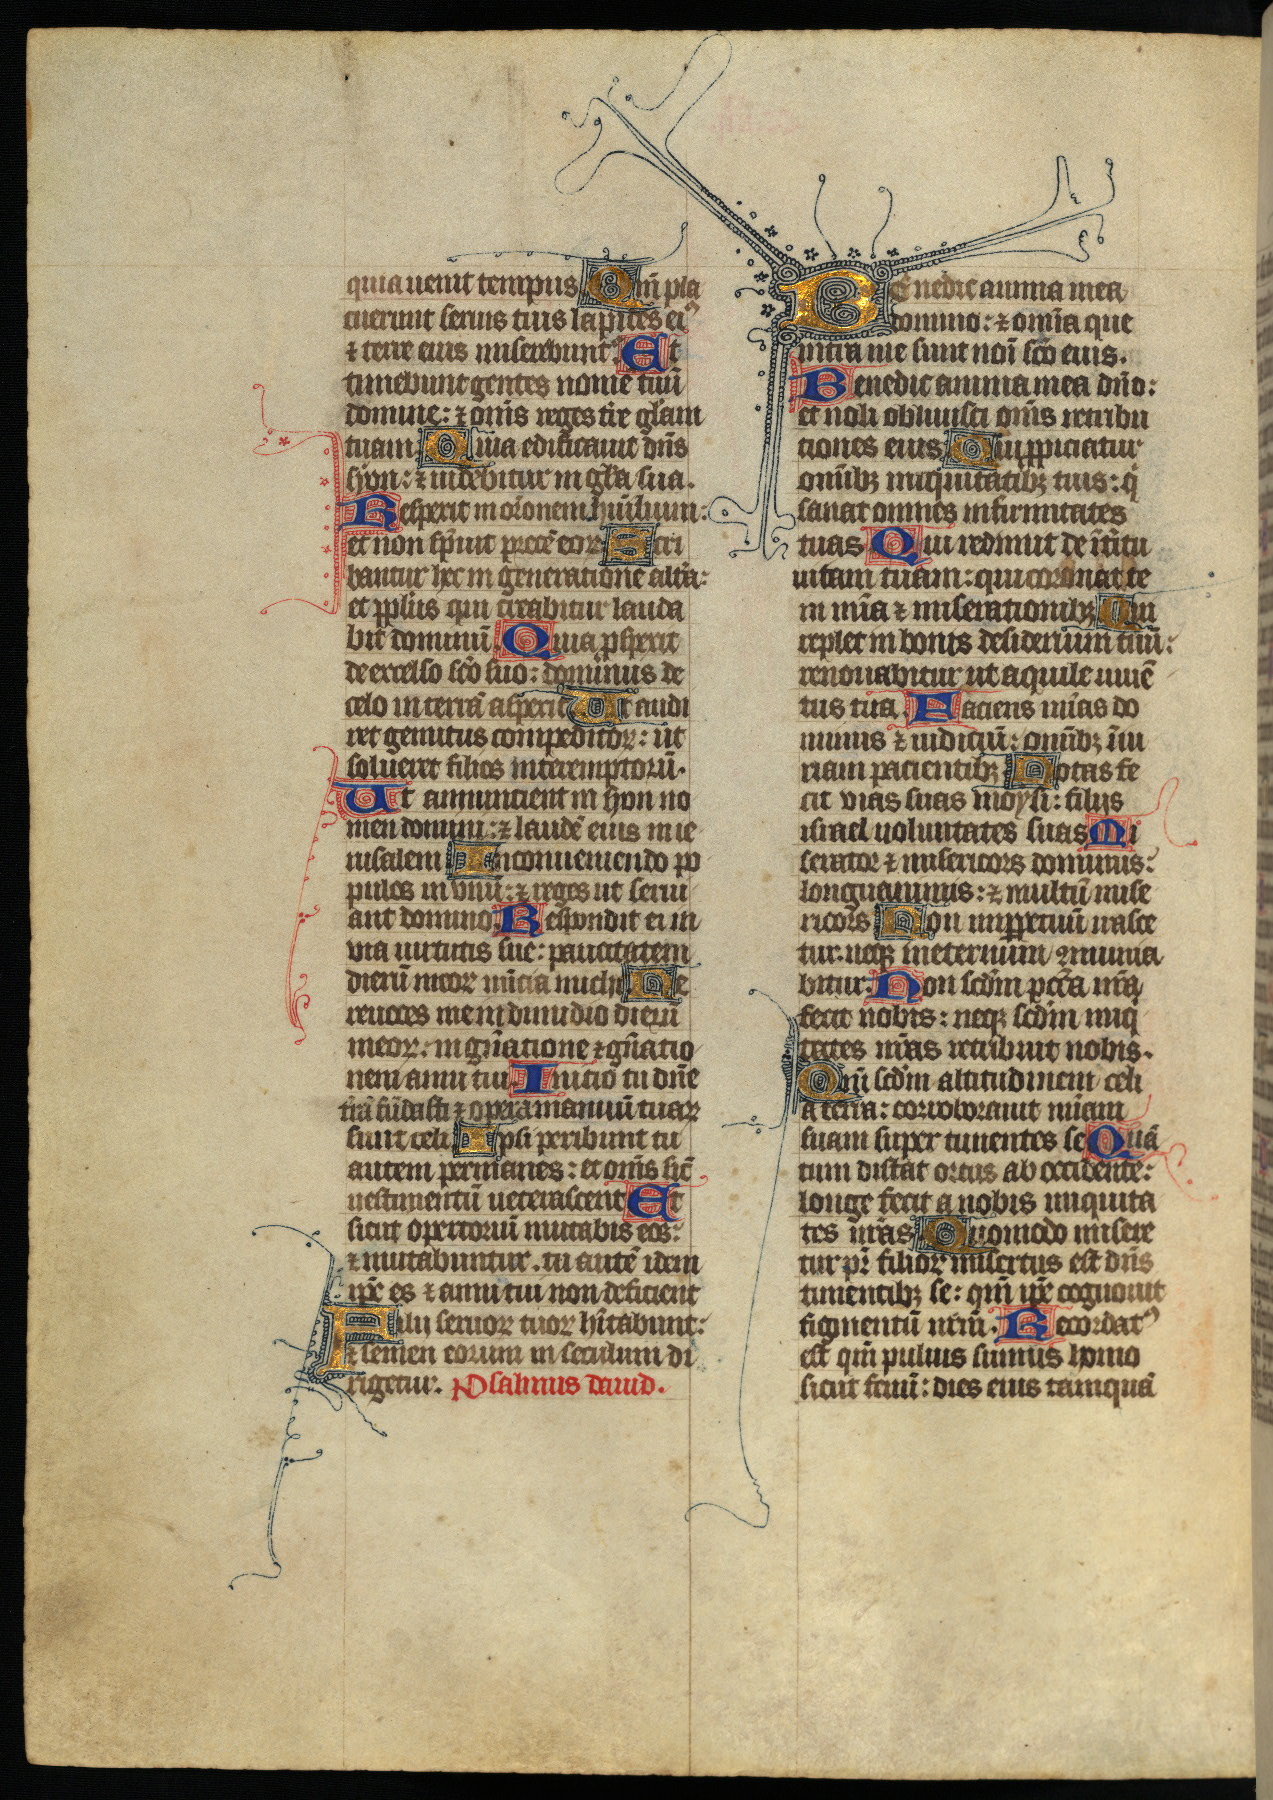 quia uenit tempus. Qm̄ pla
cuerunt seruis tuis lapides ei⁹
⁊ terre eius miserebunt᷑. Et
timebunt gentes nomē tuū
domine: ⁊ om̄s reges tr̄e gl̄am
tuam. Quia edificauit dn̄s
syon: ⁊ uidebitur in gl̄a sua.
Respexit in or̄onem hūilium:
et non sp̄uit precē eoꝝ Scri
bantur hec in generatione alt̄a:
et ppl̄us qui creabitur lauda
bit dominū. Quia ꝓspexit
de excelso sc̄o suo: dominus de
celo in terrā aspexit Ut audi
ret gemitus compeditoꝝ: ut
solueret filios interemptorū.
Ut annuncient in syon no
men domini: ⁊ laudē eius in ie
rusalem In conueniendo po
pulos in vnū: ⁊ reges ut serui
ant domino. Respondit ei in
via uirtutis sue: paucitatem
dierū meoꝝ nūcia michi. Ne
reuoces me in dimidio dierū
meoꝝ: in gn̄atione ⁊ gn̄atio
nem anni tui. Inicio tu dn̄e
tr̄ā fūdasti ⁊ opera manuū tuaꝝ
sunt celi Ipsi peribunt tu
autem permanes: et om̄s sic̄
uestimentū ueterascent Et
sicut opertoriū mutabis eos:
⁊ mutabuntur. tu autē idem
ip̄e es ⁊ anni tui non deficient
Filij seruoꝝ tuoꝝ hītabunt:
⁊ semen eorum in seculum di
rigetur. Psalmus dauid.
Benedic anima mea
domino: ⁊ omīa que
intra me sunt noī sc̄o eius.
Benedic anima mea dn̄o:
et noli obliuisci om̄s retribu
ciones eius Qui ꝓpiciatur
omībꝫ iniquitatibꝫ tuis: q̄
sanat omnes infirmitates
tuas Qui redimit de īt̄itu
uitam tuam: qui coronat te
in mīa ⁊ miserationibꝫ Qui
replet in bonis desiderium tuū:
renouabitur ut aquile iuuē
tus tua. Faciens mīas do
minus ⁊ iudiciū: omībꝫ īiu
riam pacientibꝫ Notas fe
cit vias suas moysi: filijs
israel uoluntates suas Mi
serator ⁊ misericors dominus:
longuanimis: ⁊ multū mise
ricors Non imꝑpetuū irasce
tur: neqꝫ ineternum ꝯmina
bitur. Non scd̄m pctā nr̄a
fecit nobis: neqꝫ scd̄m iniq̄
tates nr̄as retribuit nobis.
Qm̄ scd̄m altitudinem celi
a terra: corroborauit mīam
suam super timentes se Quā
tum distat ortus ab occidente:
longe fecit a nobis iniquita
tes nr̄as Quomodo misere
tur pr̄ filioꝝ misertus est dn̄s
timentibꝫ se: qm̄ ip̄e cognouit
figmentū nrm̄. Recordat⁹
est qm̄ puluis sumus homo
sicut fenū: dies eius tamquā